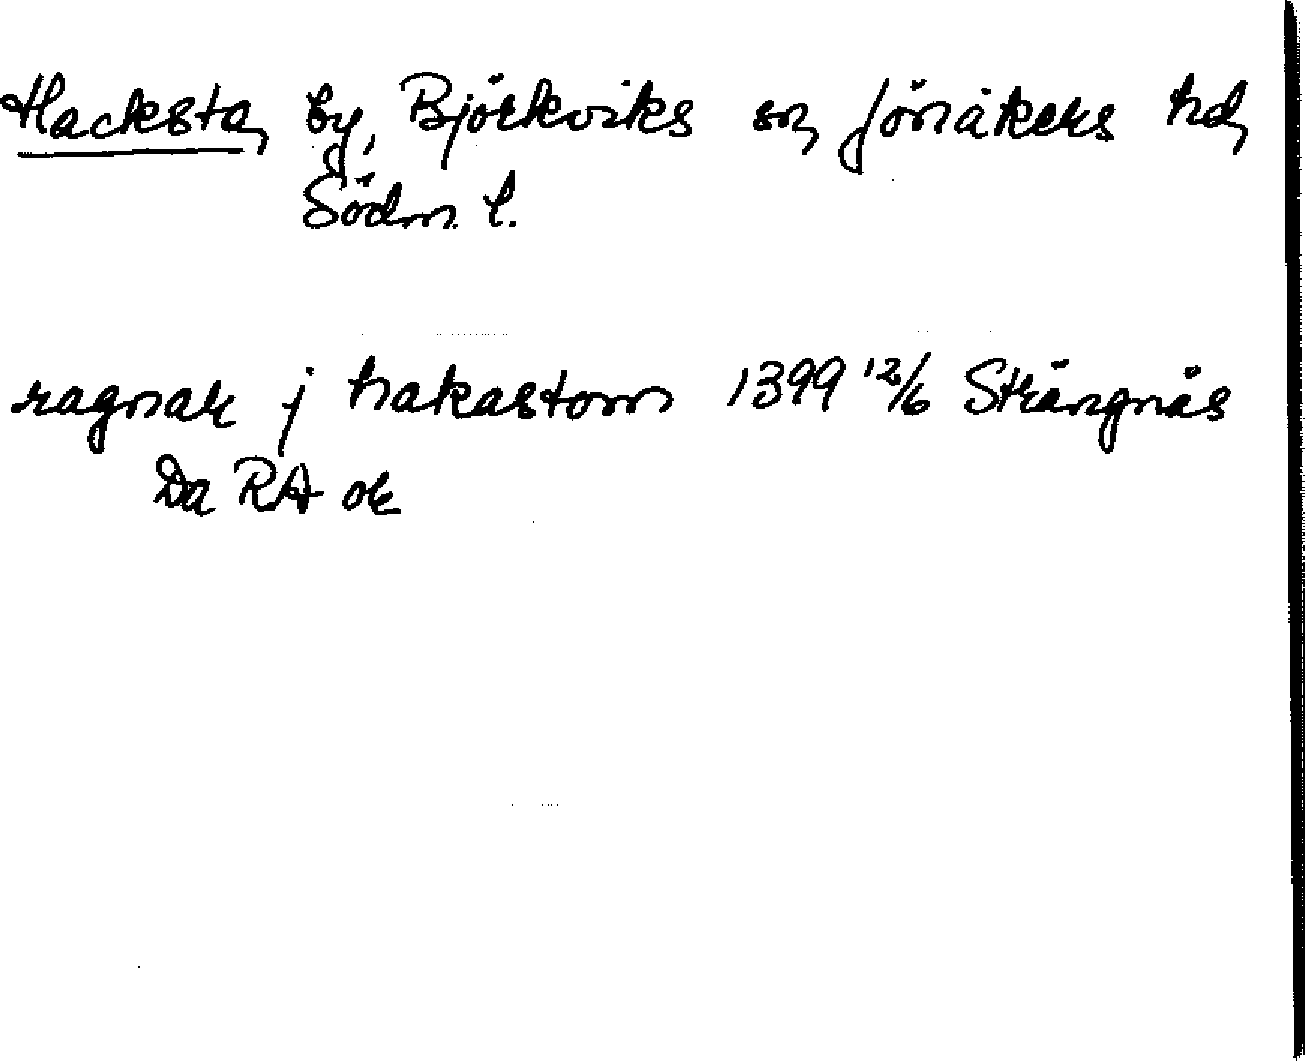 Hacksta, by, Björkviks sn, Jönåkers hd,
Södm. l.
ragnar j hakastom 1399 12/6 Strängnäs
Da RA ok